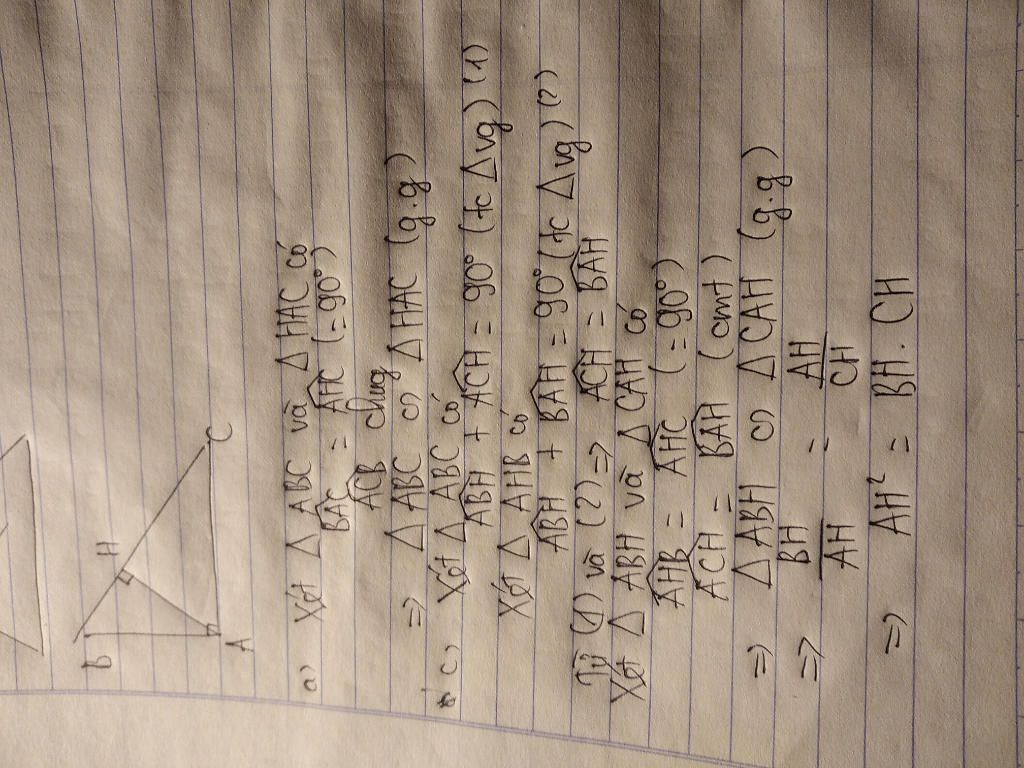 B
H
A
C
a) Xét △ ABC và △ HAC có
BAC = AHC (= 90°)
ACB chung
=> △ ABC ∽ △ HAC (g.g)
c) Xét △ ABC có
ABH + ACH = 90° (tc △ vg) (1)
Xét △ AHB có
ABH + BAH = 90° (tc △ vg) (2)
Từ (1) và (2) => ACH = BAH
Xét △ ABH và △ CAH có
AHB = AHC (= 90°)
ACH = BAH (cmt)
=> △ ABH ∽ △ CAH (g.g)
=> BH/AH = AH/CH
=> AH² = BH . CH